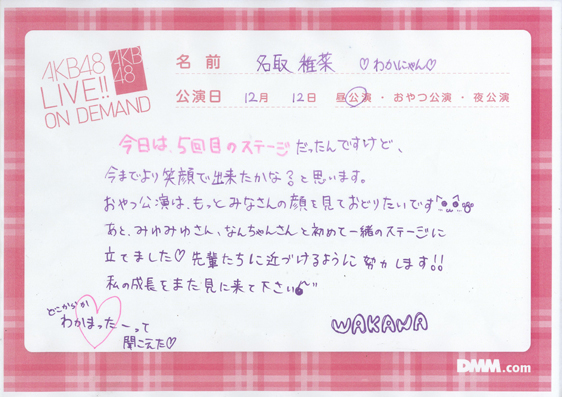 AKB48
LIVE!!
ON DEMAND
AKB
48
名前 名取 稚菜 ♡わかにゃん♡
公演日 12月 12日 昼公演・おやつ公演・夜公演
今日は、5回目のステージだったんですけど、
今までより笑顔で出来たかなぁと思います。
おやつ公演は、もっとみなさんの顔を見ておどりたいです
あと、みゆみゆさん、なんちゃんさんと初めて一緒のステージに
立てました♡先輩たちに近づけるように努力します!!
私の成長をまた見に来て下さい
どこからか
わかまったーって
聞こえた♡
WAKANA
DMM.com